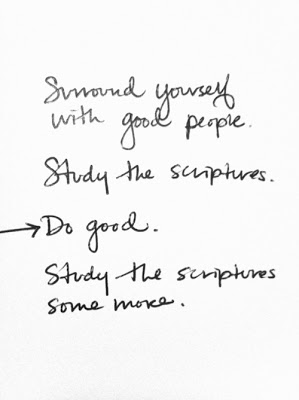 Surround yourself
with good people.
Study the scriptures.
→Do good.
Study the scriptures
some more.